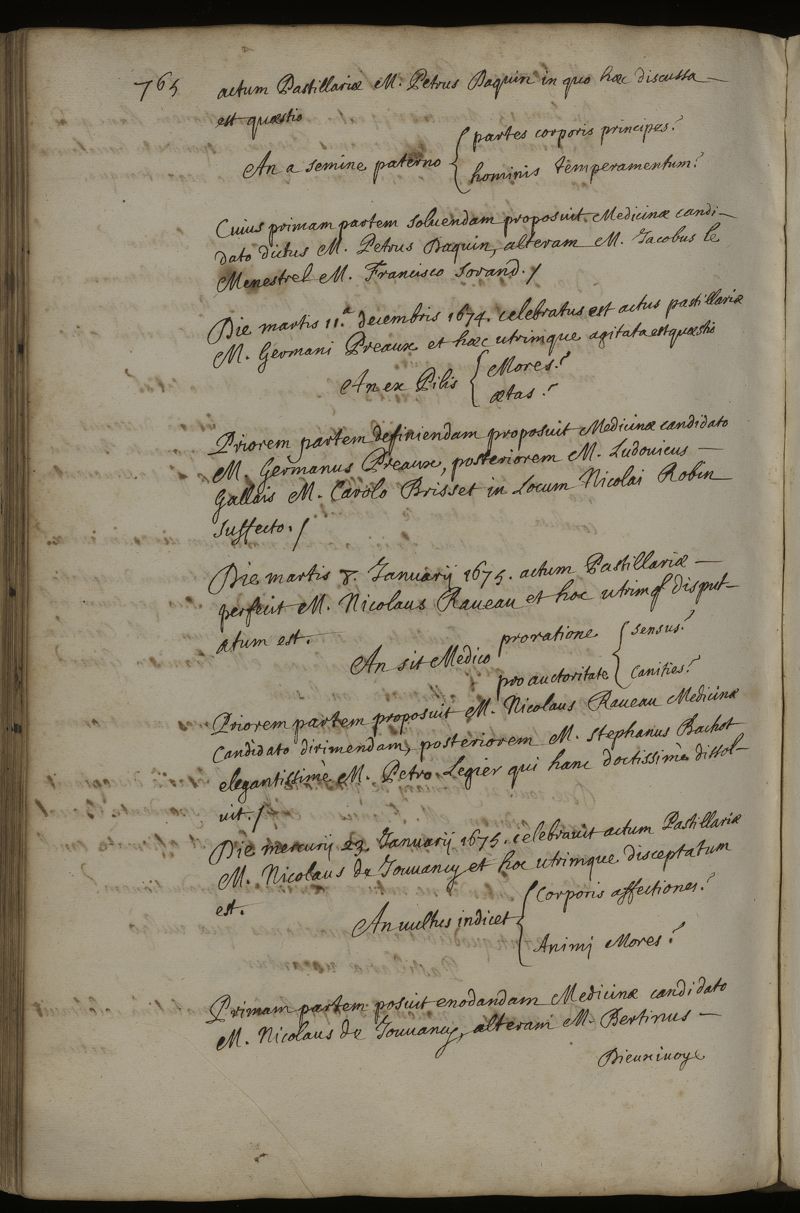 765
actum Pastillariæ M. Petrus Daquin in quo hæc discussa —
est quæstio
An a semine paterno { partes corporis principes?
hominis temperamentum?
Cuius primam partem soluendam proposuit Medicinæ candi-
dato dictus M. Petrus Daquin, alteram M. Jacobus le
Menestrel M. Francisco Sorand. /
Die martis 11.a decembris 1674. celebratus est actus pastillariæ
M. Germani Preaux et hæc utrimque agitata est quæstio
An ex Pilis { Mores?
ætas?
Priorem partem definiendam proposuit Medicinæ candidato
M. Germanus Preaux, posteriorem M. Ludovicus —
Gallais M. Carolo Brisset in Locum Nicolai Robin
suffecto. /
Die martis 8. Januarij 1675. actum Pastillariæ —
perfecit M. Nicolaus Raueau et hoc utrimq disput-
atum est.
An sit Medico pro ratione { sensus?
pro auctoritate canities?
Priorem partem proposuit M. Nicolaus Raueau Medicinæ
Candidato dirimendam, posteriorem M. Stephanus Bachot
elegantissimè M. Petro Legier qui hanc doctissimè dissol-
uit. /
Die mercurij 23. Januarij 1675. celebrauit actum Pastillariæ
M. Nicolaus de Jouuancy et hoc utrimque disceptatum
est.
An uultus indicet { Corporis affectiones?
Animj Mores?
Primam partem posuit enodandam Medicinæ candidato
M. Nicolaus de Jouuancy, alteram M. Bertinus —
Dieuxiuoye